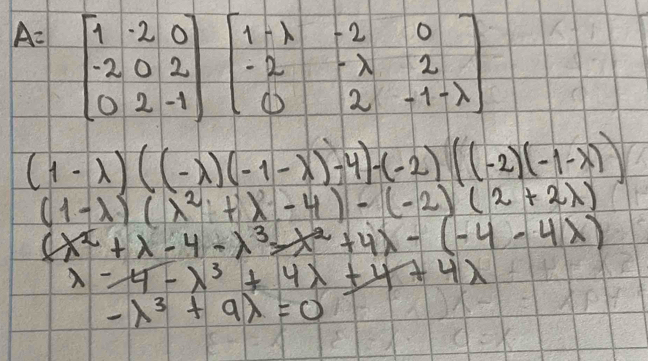 A= [1 -2 0] [1-λ -2 0]
[-2 0 2] [-2 -λ 2]
[0 2 -1] [0 2 -1-λ]
(1-λ)((-λ)(-1-λ)-4)-(-2)((-2)(-1-λ))
(1-λ)(λ² + λ - 4) - (-2)(2 + 2λ)
(λ² + λ - 4 - λ³ - λ² + 4λ - (-4 - 4λ)
λ - 4 - λ³ + 4λ + 4 + 4λ
-λ³ + 9λ = 0